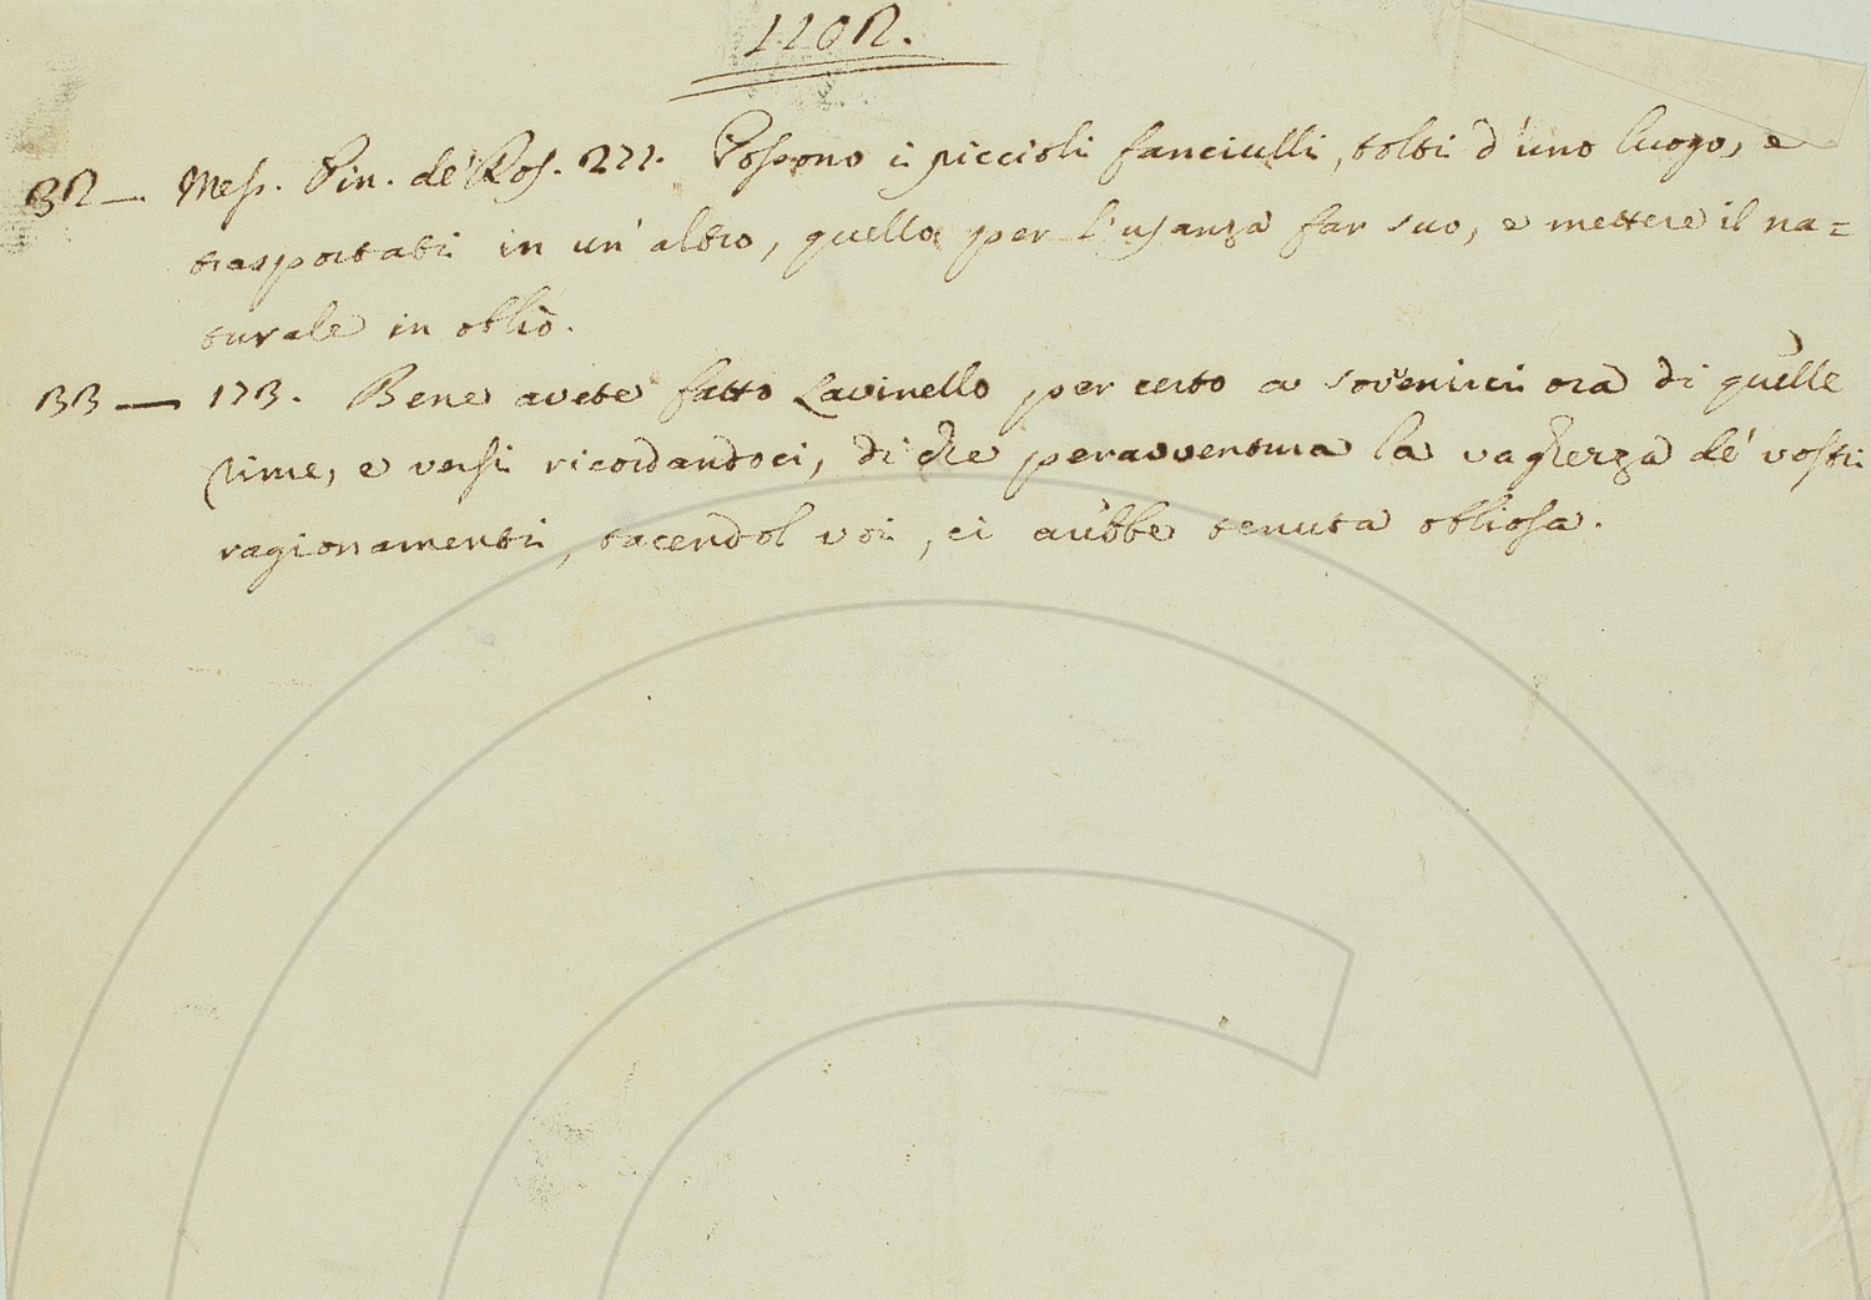 1102.
32 — Mess. Pin. de' Ros. 277. Possono i piccioli fanciulli, tolti d'uno luogo, e
trasportati in un' altro, quello per l'usanza far suo, e mettere il na=
turale in oblio.
33 — 173. Bene avete fatto Lavinello per certo a sovenirci ora di quelle
rime, e versi ricordandoci, di che peravventura la vaghezza de' vostri
ragionamenti, tacendol voi, ci avrebbe tenuta obliosa.